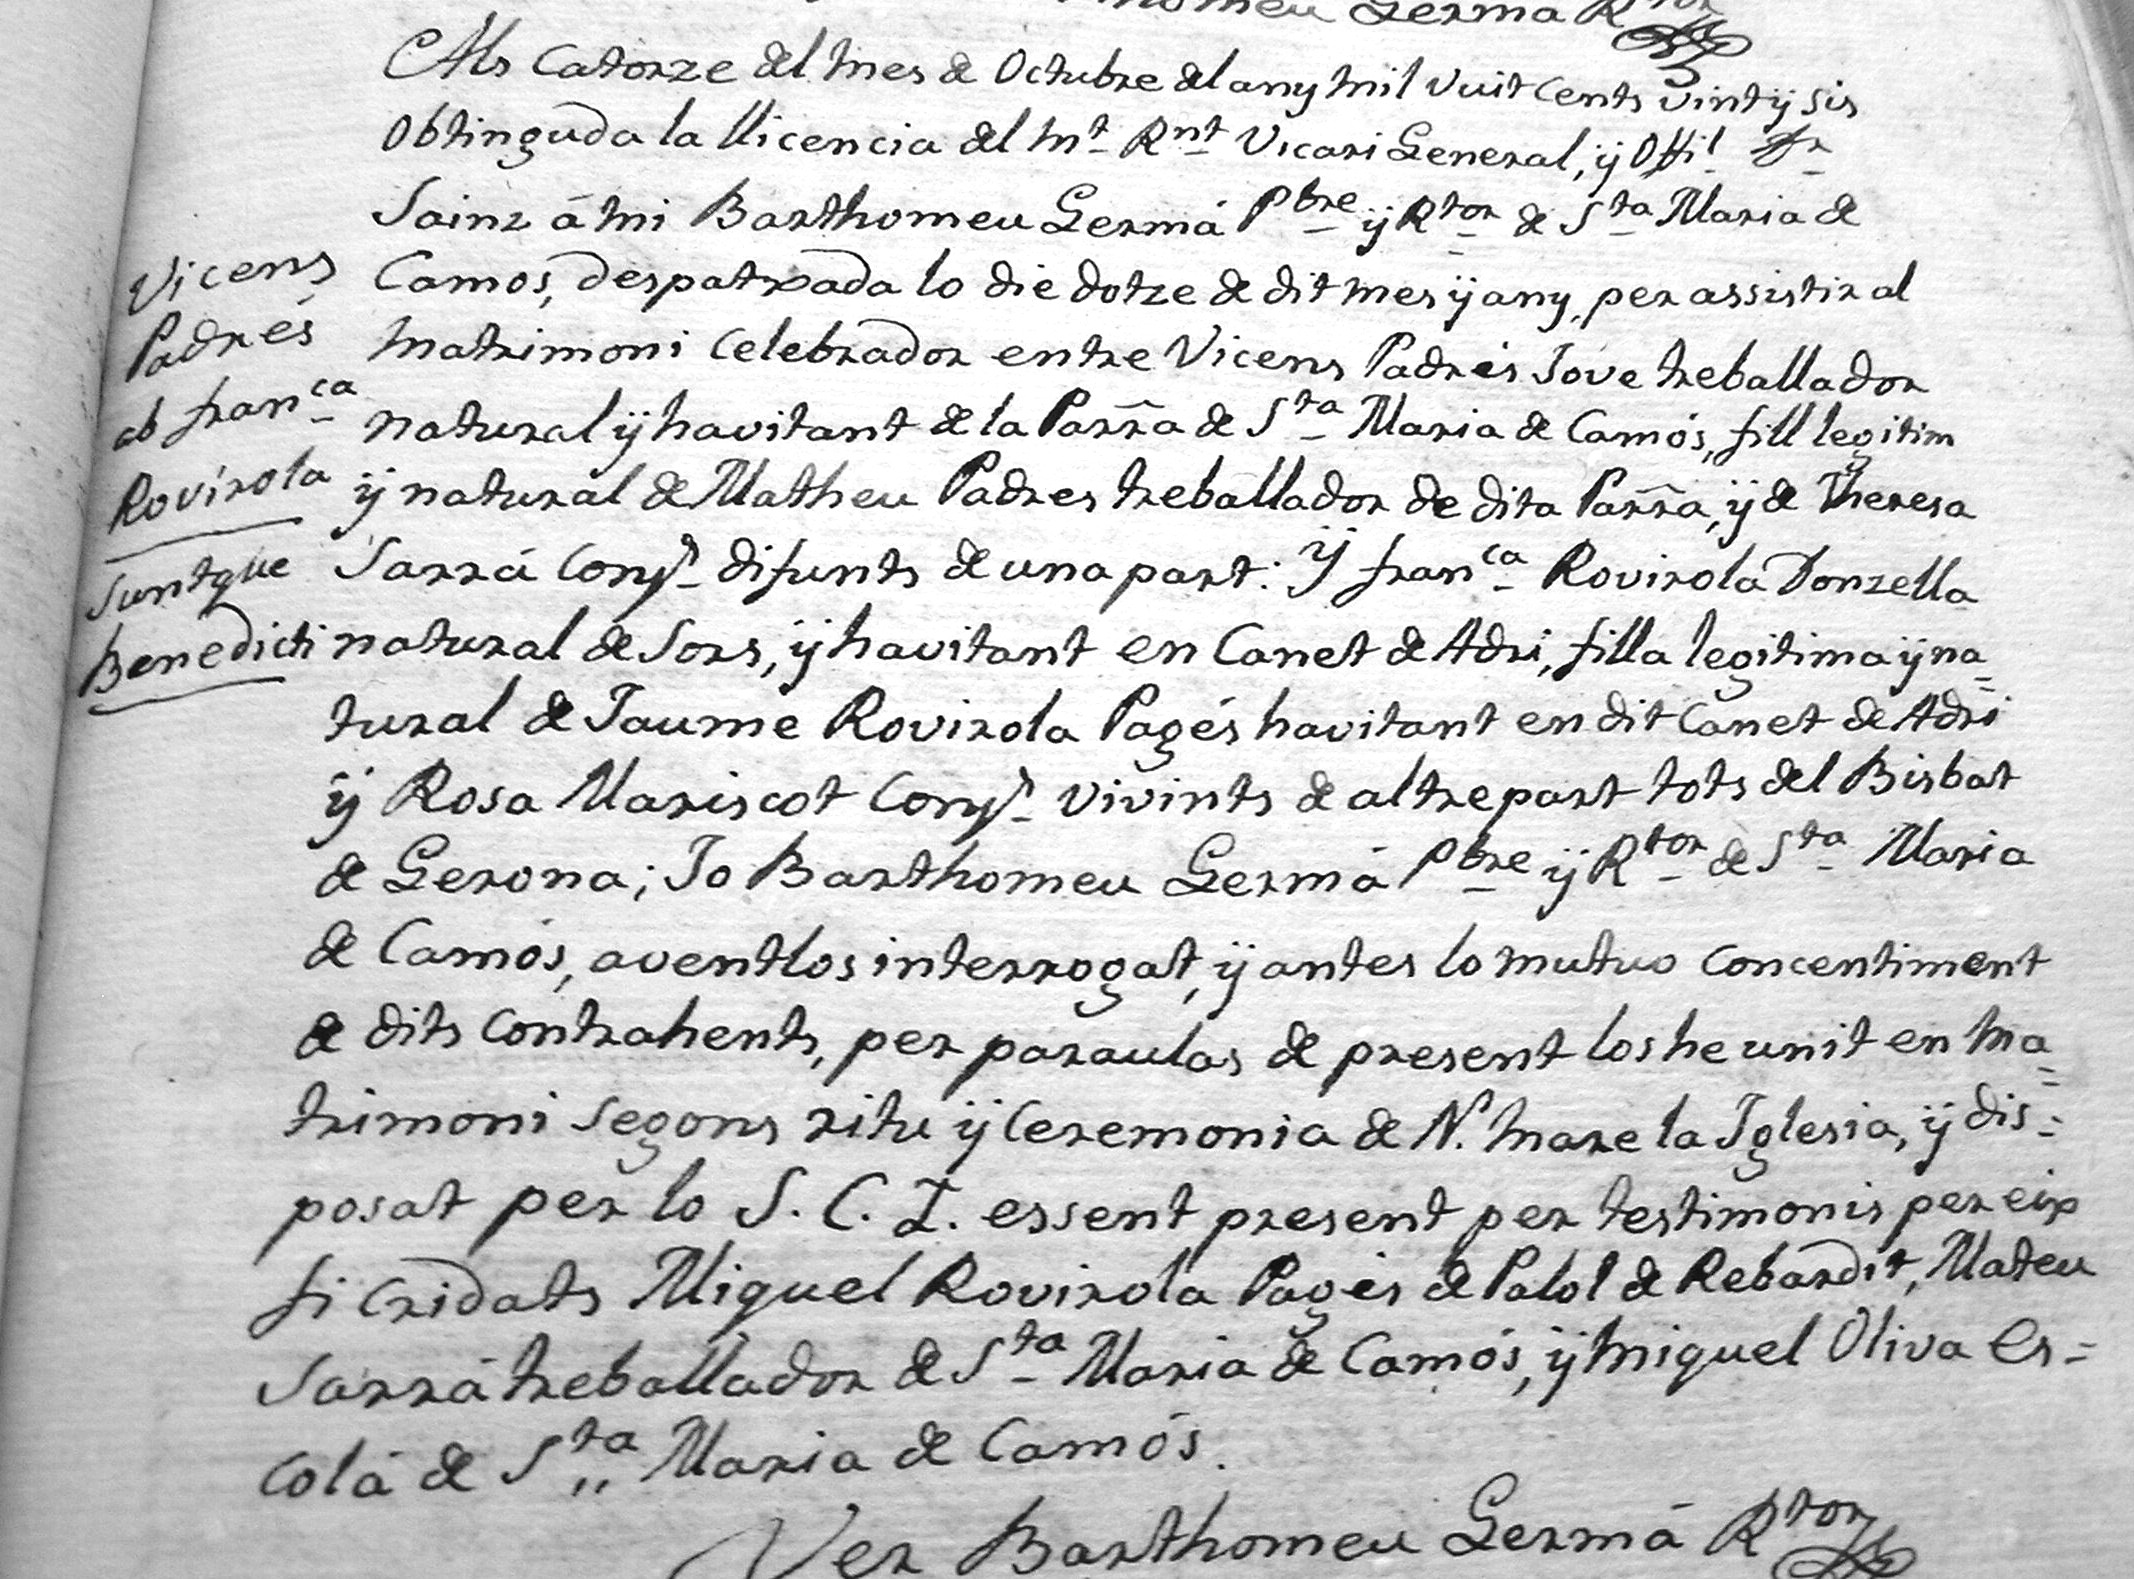 Germá Rtor
Als Catorze del mes de Octubre del any mil vuit Cents vint ÿ sis
Obtinguda la llicencia del Mt Rnt Vicari General, ÿ Offil Dr
Sainz á mi Barthomeu Germá Pbre ÿ Rtor de Sta Maria de
Camos, despatxada lo die dotze de dit mes ÿ any, per assistir al
Matrimoni Celebrador entre Vicens Padrés Jove treballador
natural ÿ havitant de la Parra de Sta Maria de Camós, fill legitim
ÿ natural de Matheu Padres treballador de dita Parra, ÿ de Theresa
Sarrá Conys difunts de una part: ÿ Franca Rovirola Donzella
natural de Sors, ÿ havitant en Canet de Adri, filla legitima ÿ na=
tural de Jaume Rovirola Pagés havitant en dit Canet de Adri
ÿ Rosa Mariscot Conys vivints de altre part tots del Bisbat
de Gerona; Jo Barthomeu Germá Pbre ÿ Rtor de Sta Maria
de Camós, aventlos interrogat, ÿ antes lo mutuo concentiment
de dits Contrahents, per paraulas de present los he unit en Ma=
trimoni segons ritu ÿ Ceremonia de N. Mare la Iglesia, ÿ dis=
posat per lo S. C. T. essent present per testimonis per eix
fi Cridats Miquel Rovirola Pagés de Palol de Rebardit, Mateu
Sarrá treballador de Sta Maria de Camós, ÿ Miquel Oliva Es=
colá de Sta Maria de Camós.
Ver Barthomeu Germá Rtor
Vicens
Padrés
ab Franca
Rovirola
Suntque
Benedicti